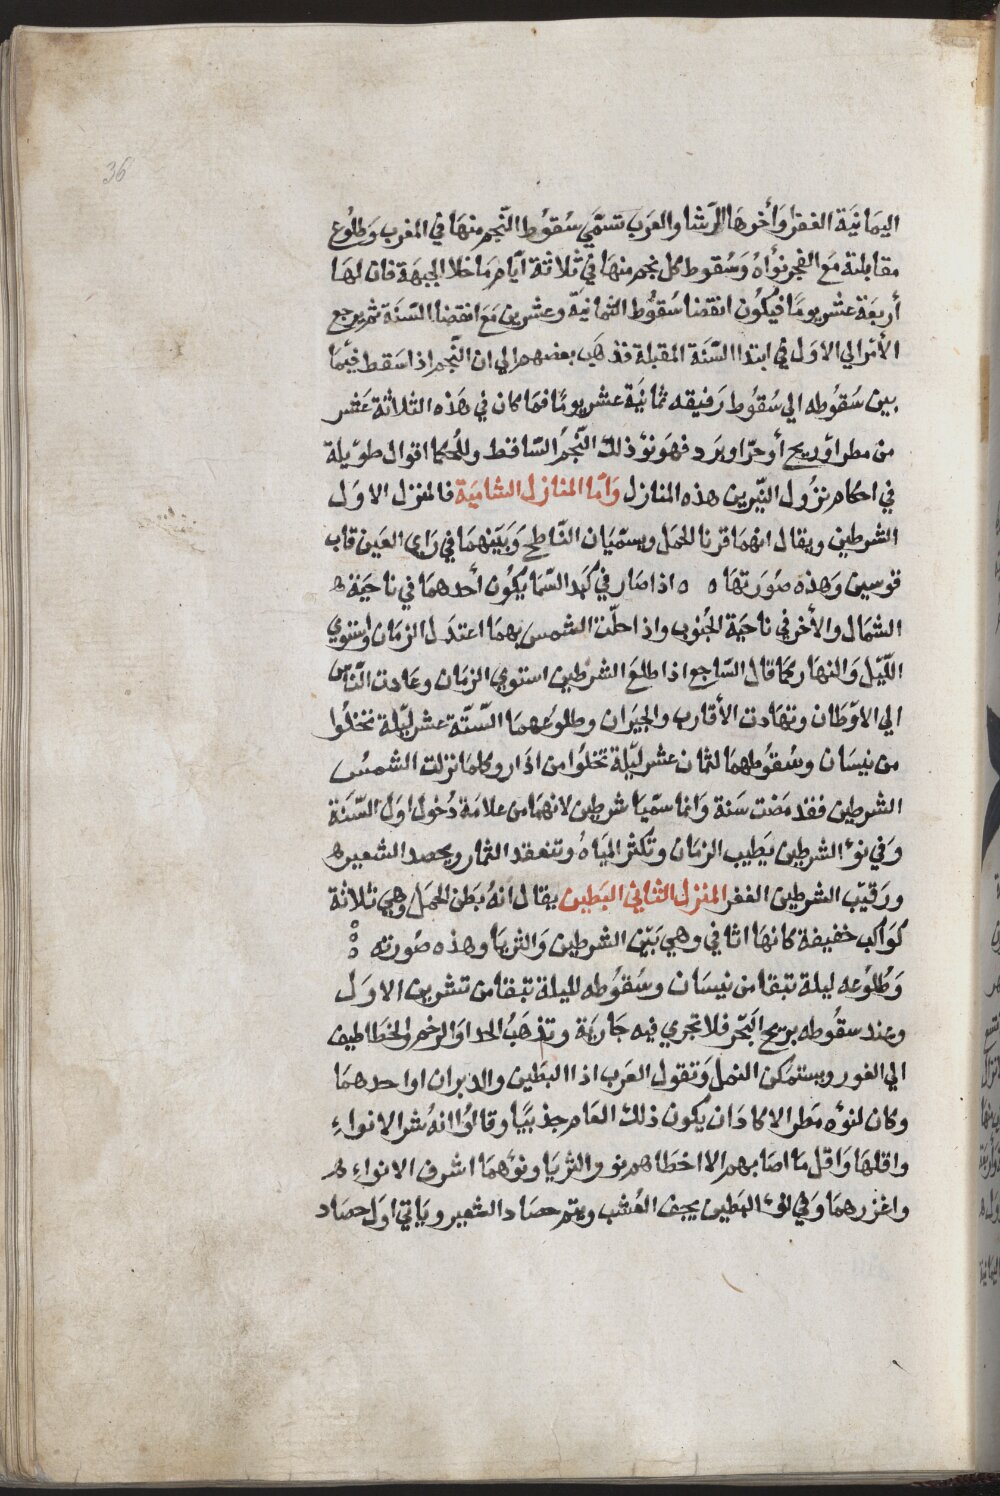 36
اليمانية الغفر وأخرها الرشا والعرب تسمّي سُقوُط النّجم منهَا في المغرب وَطلُوع
مقابلته مَع الفجر نوأه وَسُقوط كل نجم منها في ثلاثة ايّام مَا خلا الجبهَة فان لهَا
أربعَة عشر يومًا فيكوُن انقضا سُقوُط الثمانيَة وعشرين مَع انقضا السّنَة ثم يرجع
الأمر الي الاول في ابتدا السّنَة المقبلة فذهَب بعضهم الي ان النّجم اذا سَقط فيَما
بين سُقوُطه الي سُقوُط رَفيقه ثمانيَة عشر يومًا فما كان في هَذه الثلاثة عَشر
من مطر اوريح أوحرّ اوبَرد فهوَ نؤ ذلك النّجم السّاقط وللُحكما اقوال طوَيلة
في احكام نزُول النيّرين هذه المنازل وَأمّا المنازل الشاميَة فالمنزل الاوَل
الشرطين ويقال انهمَا قرنا الحمَل ويسمّيَان النّاطح وَبَيَنهمَا في رَاي العَين قاب
قوسين وَهذه صُورَتهَا ه ه اذا صَار في كبد السّمَا يكوُن أحدهمَا في ناحيَة ه
الشمال والأخر في ناحيَة الجنُوب واذا حلّت الشمس بهمَا اعتدَل الزمَان واستوي
اللّيَل وَالنهَار كمَا قال السّاجع اذا طلعَ الشرطين استوي الزمَان وعَادت النّاس
الي الاوَطان وتهَادت الأقارب والجيرَان وطلوعهمَا السّتّة عشر ليَلة تخلُوا
من نيسَان وسُقوُطهمَا لثمان عشر ليَلة تخلوُا من اذَار وكلمَا نزلت الشمسُ
الشرطين فقد مَضت سَنة وَانما سمّيَا شرطين لانهمَا من علامَة دُخول اوَل السّنَة
وَفي نوء الشرطين يَطيب الزمَان وتكثر الميَاه وتنعقد الثمار ويحصد الشعير ه
ورَقيَب الشرطين الغفر المنزل الثاني البَطين يقال انهُ بَطن الحمَل وهي ثلاثة
كوَاكب خفيفة كانها اثافي وهي بَيَن الشرطين وَالثريا وهذه صُورته
وَطُلوُعه ليلة تبقا من نيسَان وسُقوُطه لليلة تبقا من تشرين الاوَل
وعند سقُوطه يريح البَحر فلا تجري فيه جَاريَة وتذهَبُ الحدا وَالرخم والخطاطيف
الي الغور ويستمكن النمل وَتقول العَرب اذا البَطين والدبران اواحدهمَا
وكان لنوُه مَطر الا كادَان يكون ذلك العَام جذبيَّا وقالوُا انهُ شر الانواءِ
واقلهَا وَاقل مَا اصَابهم الا اخطاهم نو والثريَا ونؤهمَا اشرف الانواءِ ه
واغزرهمَا وَفي نوء البَطين يجف العُشب ويتم حصَاد الشعير ويَاتي اوَل حصَاد